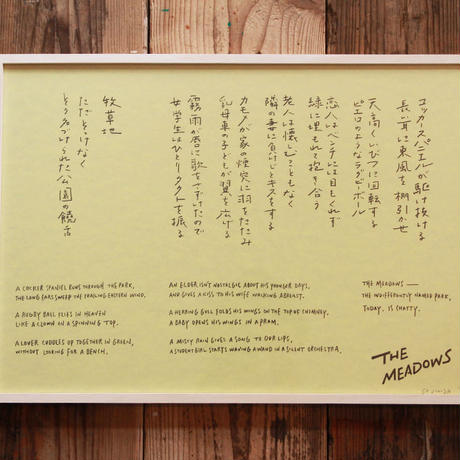 コッカースパニエルが駆け抜ける
長い耳に東風を棚引かせ
天高くいびつに回転する
ピエロのようなラグビーボール
恋人はベンチには目もくれず
緑に埋もれて抱き合う
老人は懐しむこともなく
隣の妻に負けじとキスをする
カモメが家の煙突に羽をたたみ
乳母車の子どもが翼を広げる
霧雨が唇に歌をさずけたので
女学生はひとりタクトを振る
牧草地
ただそっけなく
そう名づけられた公園の饒舌
A COCKER SPANIEL RUNS THROUGH THE PARK,
THE LONG EARS SWEEP THE TRAILING EASTERN WIND.
A RUGBY BALL FLIES IN HEAVEN
LIKE A CLOWN ON A SPINNING TOP.
A LOVER CUDDLES UP TOGETHER IN GREEN,
WITHOUT LOOKING FOR A BENCH.
AN ELDER ISN'T NOSTALGIC ABOUT HIS YOUNGER DAYS,
AND GIVES A KISS TO HIS WIFE WALKING ABREAST.
A HERRING GULL FOLDS HIS WINGS ON THE TOP OF CHIMNEY,
A BABY OPENS HIS WINGS IN A PRAM.
A MISTY RAIN GIVES A SONG TO OUR LIPS,
A STUDENT GIRL STARTS WAVING A WAND IN A SILENT ORCHESTRA.
THE MEADOWS —
THE INDIFFERENTLY NAMED PARK,
TODAY, IS CHATTY.
THE
MEADOWS